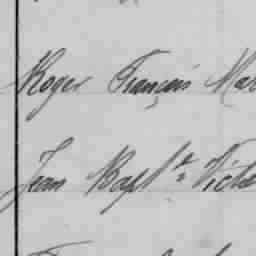 Roger François Mar
Jean Bapt.e Victo